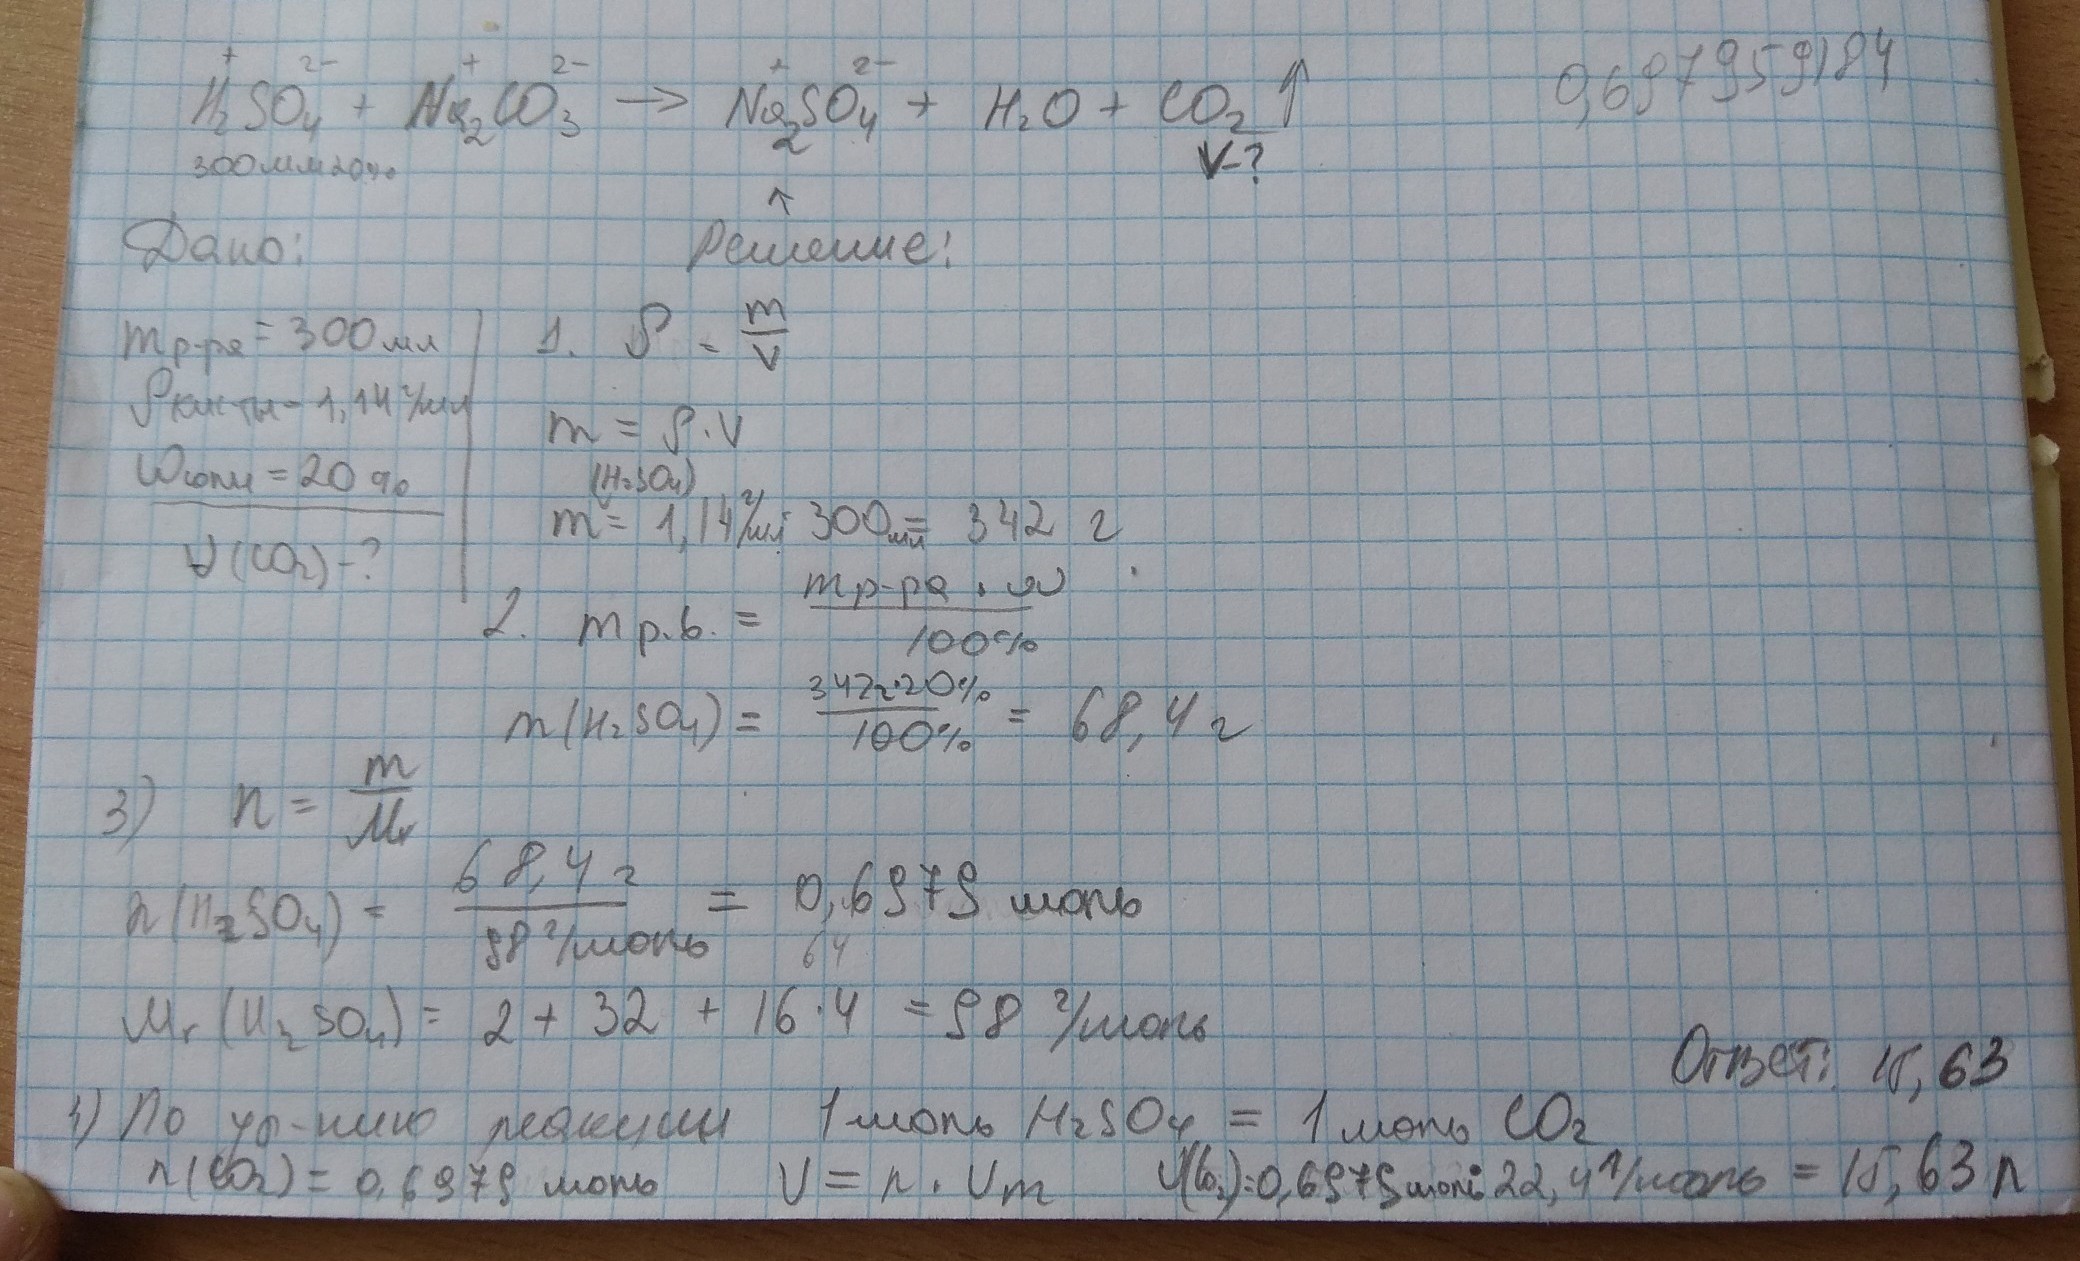 H₂⁺SO₄²⁻ + Na₂⁺CO₃²⁻ → Na₂⁺SO₄²⁻ + H₂O + CO₂↑
0,697959184
300мм 20%
V-?
↑
Дано:
Решение:
m р-ра = 300 мл
ρ кисты - 1,14 г/мл
W = 20%
V(CO₂)-?
1. ρ = m/V
m = ρ·V
(H₂SO₄)
m = 1,14 г/мл · 300 мл = 342 г
2. m р.в. = m р-ра · w / 100%
m(H₂SO₄) = 342г·20% / 100% = 68,4 г
3) n = m/Mr
n(H₂SO₄) = 68,4 г / 98 г/моль = 0,6979 моль
64
Mr(H₂SO₄) = 2 + 32 + 16·4 = 98 г/моль
Ответ: 15,63
4) По ур-нию реакции 1 моль H₂SO₄ = 1 моль CO₂
n(CO₂) = 0,6979 моль V = n · Vm V(CO₂) = 0,6979 моль · 22,4 л/моль = 15,63 л